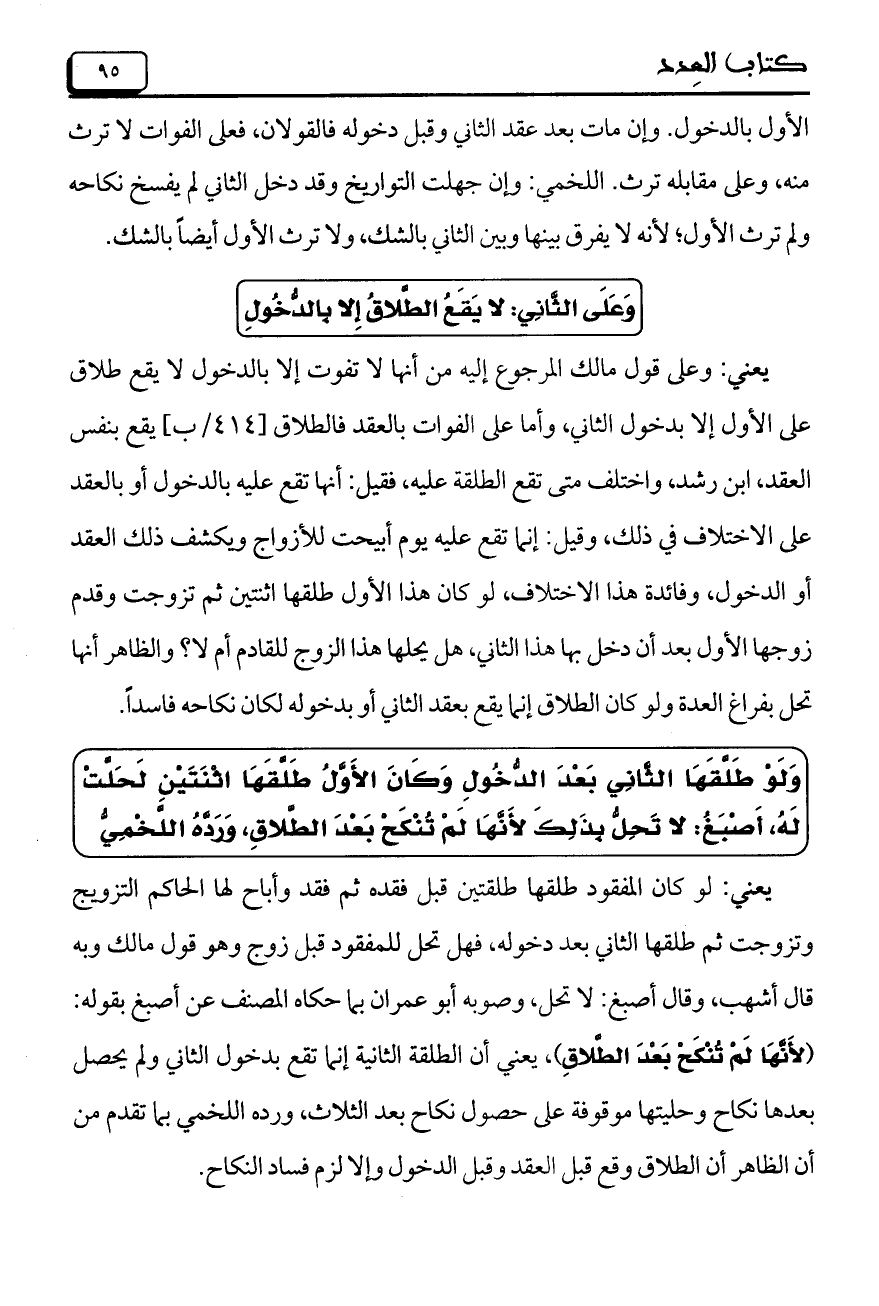 كتاب العِدد
٩٥
الأول بالدخول. وإن مات بعد عقد الثاني وقبل دخوله فالقولان، فعلى الفوات لا ترث
منه، وعلى مقابله ترث. اللخمي: وإن جهلت التواريخ وقد دخل الثاني لم يفسخ نكاحه
ولم ترث الأول؛ لأنه لا يفرق بينها وبين الثاني بالشك، ولا ترث الأول أيضاً بالشك.
وَعَلَى الثَّانِي: لا يَقَعُ الطَّلاقُ إِلا بِالدُّخُولِ
يعني: وعلى قول مالك المرجوع إليه من أنها لا تفوت إلا بالدخول لا يقع طلاق
على الأول إلا بدخول الثاني، وأما على الفوات بالعقد فالطلاق [٤١٤/ ب] يقع بنفس
العقد، ابن رشد، واختلف متى تقع الطلقة عليه، فقيل: أنها تقع عليه بالدخول أو بالعقد
على الاختلاف في ذلك، وقيل: إنما تقع عليه يوم أبيحت للأزواج ويكشف ذلك العقد
أو الدخول، وفائدة هذا الاختلاف، لو كان هذا الأول طلقها اثنتين ثم تزوجت وقدم
زوجها الأول بعد أن دخل بها هذا الثاني، هل يحلها هذا الزوج للقادم أم لا؟ والظاهر أنها
تحل بفراغ العدة ولو كان الطلاق إنما يقع بعقد الثاني أو بدخوله لكان نكاحه فاسداً.
وَلَوْ طَلَّقَهَا الثَّانِي بَعْدَ الدُّخُولِ وَكَانَ الأَوَّلُ طَلَّقَهَا اثْنَتَيْنِ لَحَلَّتْ
لَهُ، أَصْبَغُ: لا تَحِلُّ بِذَلِكَ لأَنَّهَا لَمْ تُنْكَحْ بَعْدَ الطَّلاقِ، وَرَدَّهُ اللَّخْمِيُّ
يعني: لو كان المفقود طلقها طلقتين قبل فقده ثم فقد وأباح لها الحاكم التزويج
وتزوجت ثم طلقها الثاني بعد دخوله، فهل تحل للمفقود قبل زوج وهو قول مالك وبه
قال أشهب، وقال أصبغ: لا تحل، وصوبه أبو عمران بما حكاه المصنف عن أصبغ بقوله:
(لأَنَّهَا لَمْ تُنْكَحْ بَعْدَ الطَّلاقِ)، يعني أن الطلقة الثانية إنما تقع بدخول الثاني ولم يحصل
بعدها نكاح وحليتها موقوفة على حصول نكاح بعد الثلاث، ورده اللخمي بما تقدم من
أن الظاهر أن الطلاق وقع قبل العقد وقبل الدخول وإلا لزم فساد النكاح.